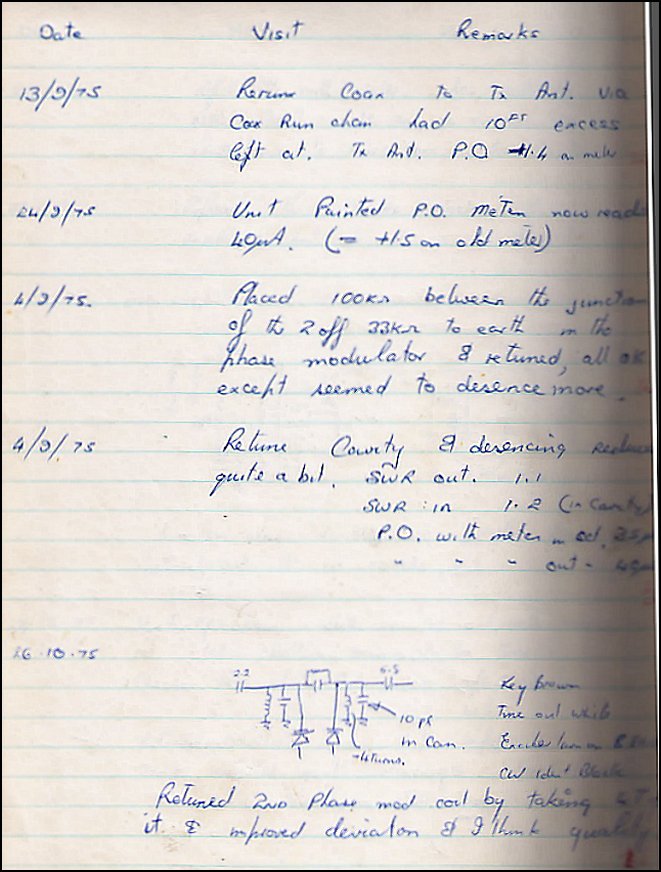 Date Visit Remarks
13/9/75 Rerunx Coax to Tx Ant. Via
Cox Run chan had 10FT excess
left at. Tx Ant. P.O +1.4 on meter
24/9/75 Unit Painted P.O. Meter now reads
40µA. (= +1.5 on old meter)
4/9/75. Placed 100KΩ between the junction
of the 2 off 33KΩ to earth in the
phase modulator & retuned, all ok
except seemed to desence more.
4/9/75 Retune Cavity & desencing
quite a bit. SWR out. 1.1
SWR : in 1.2 (in Cavity)
P.O. with meter in
" " " out -
26.10.75
2.2 6.5
10 pf
in Can.
4 turns.
Key brown
Tune out white
Exciter turn on
CW ident Black
Retuned 2ND Phase mod coil by taking
it. & improved deviaton & I think quality